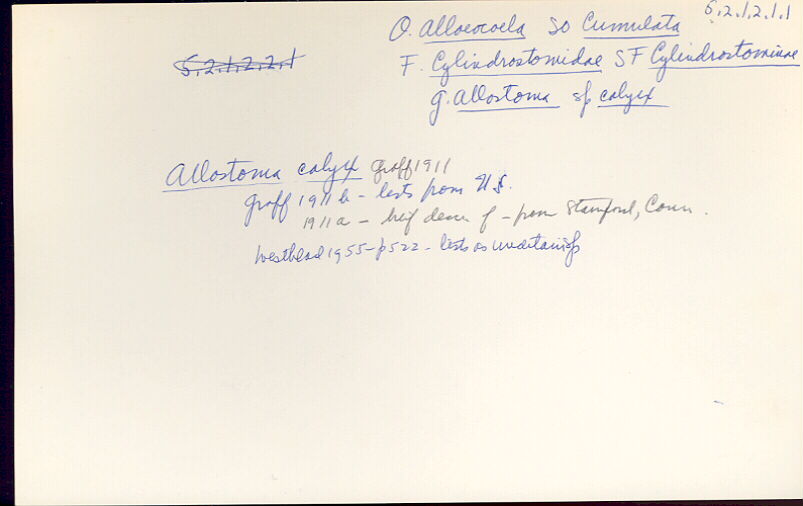 5.2.1.2.1.1
O. Alloeocoela SO Cumulata
5.2.1.2.2.1
F. Cylindrostomidae SF Cylindrostominae
g. Allostoma sp calyx
Allostoma calyx Graff 1911
Graff 1911b - lists from U.S.
1911a - brief descr of - from Stamford, Conn.
Westblad 1955 - p 522 - lists as uncertain sp